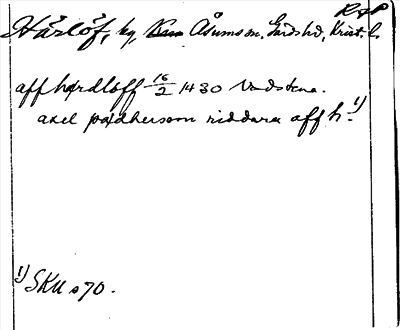 RAP
Hårlöf, kg, Åsums sn, Gärds hd, Krist. l.
aff hørdløff 16/2 1430 Vadstena.
axel pædherson riddara aff h. 1)
1) SRU s 70.